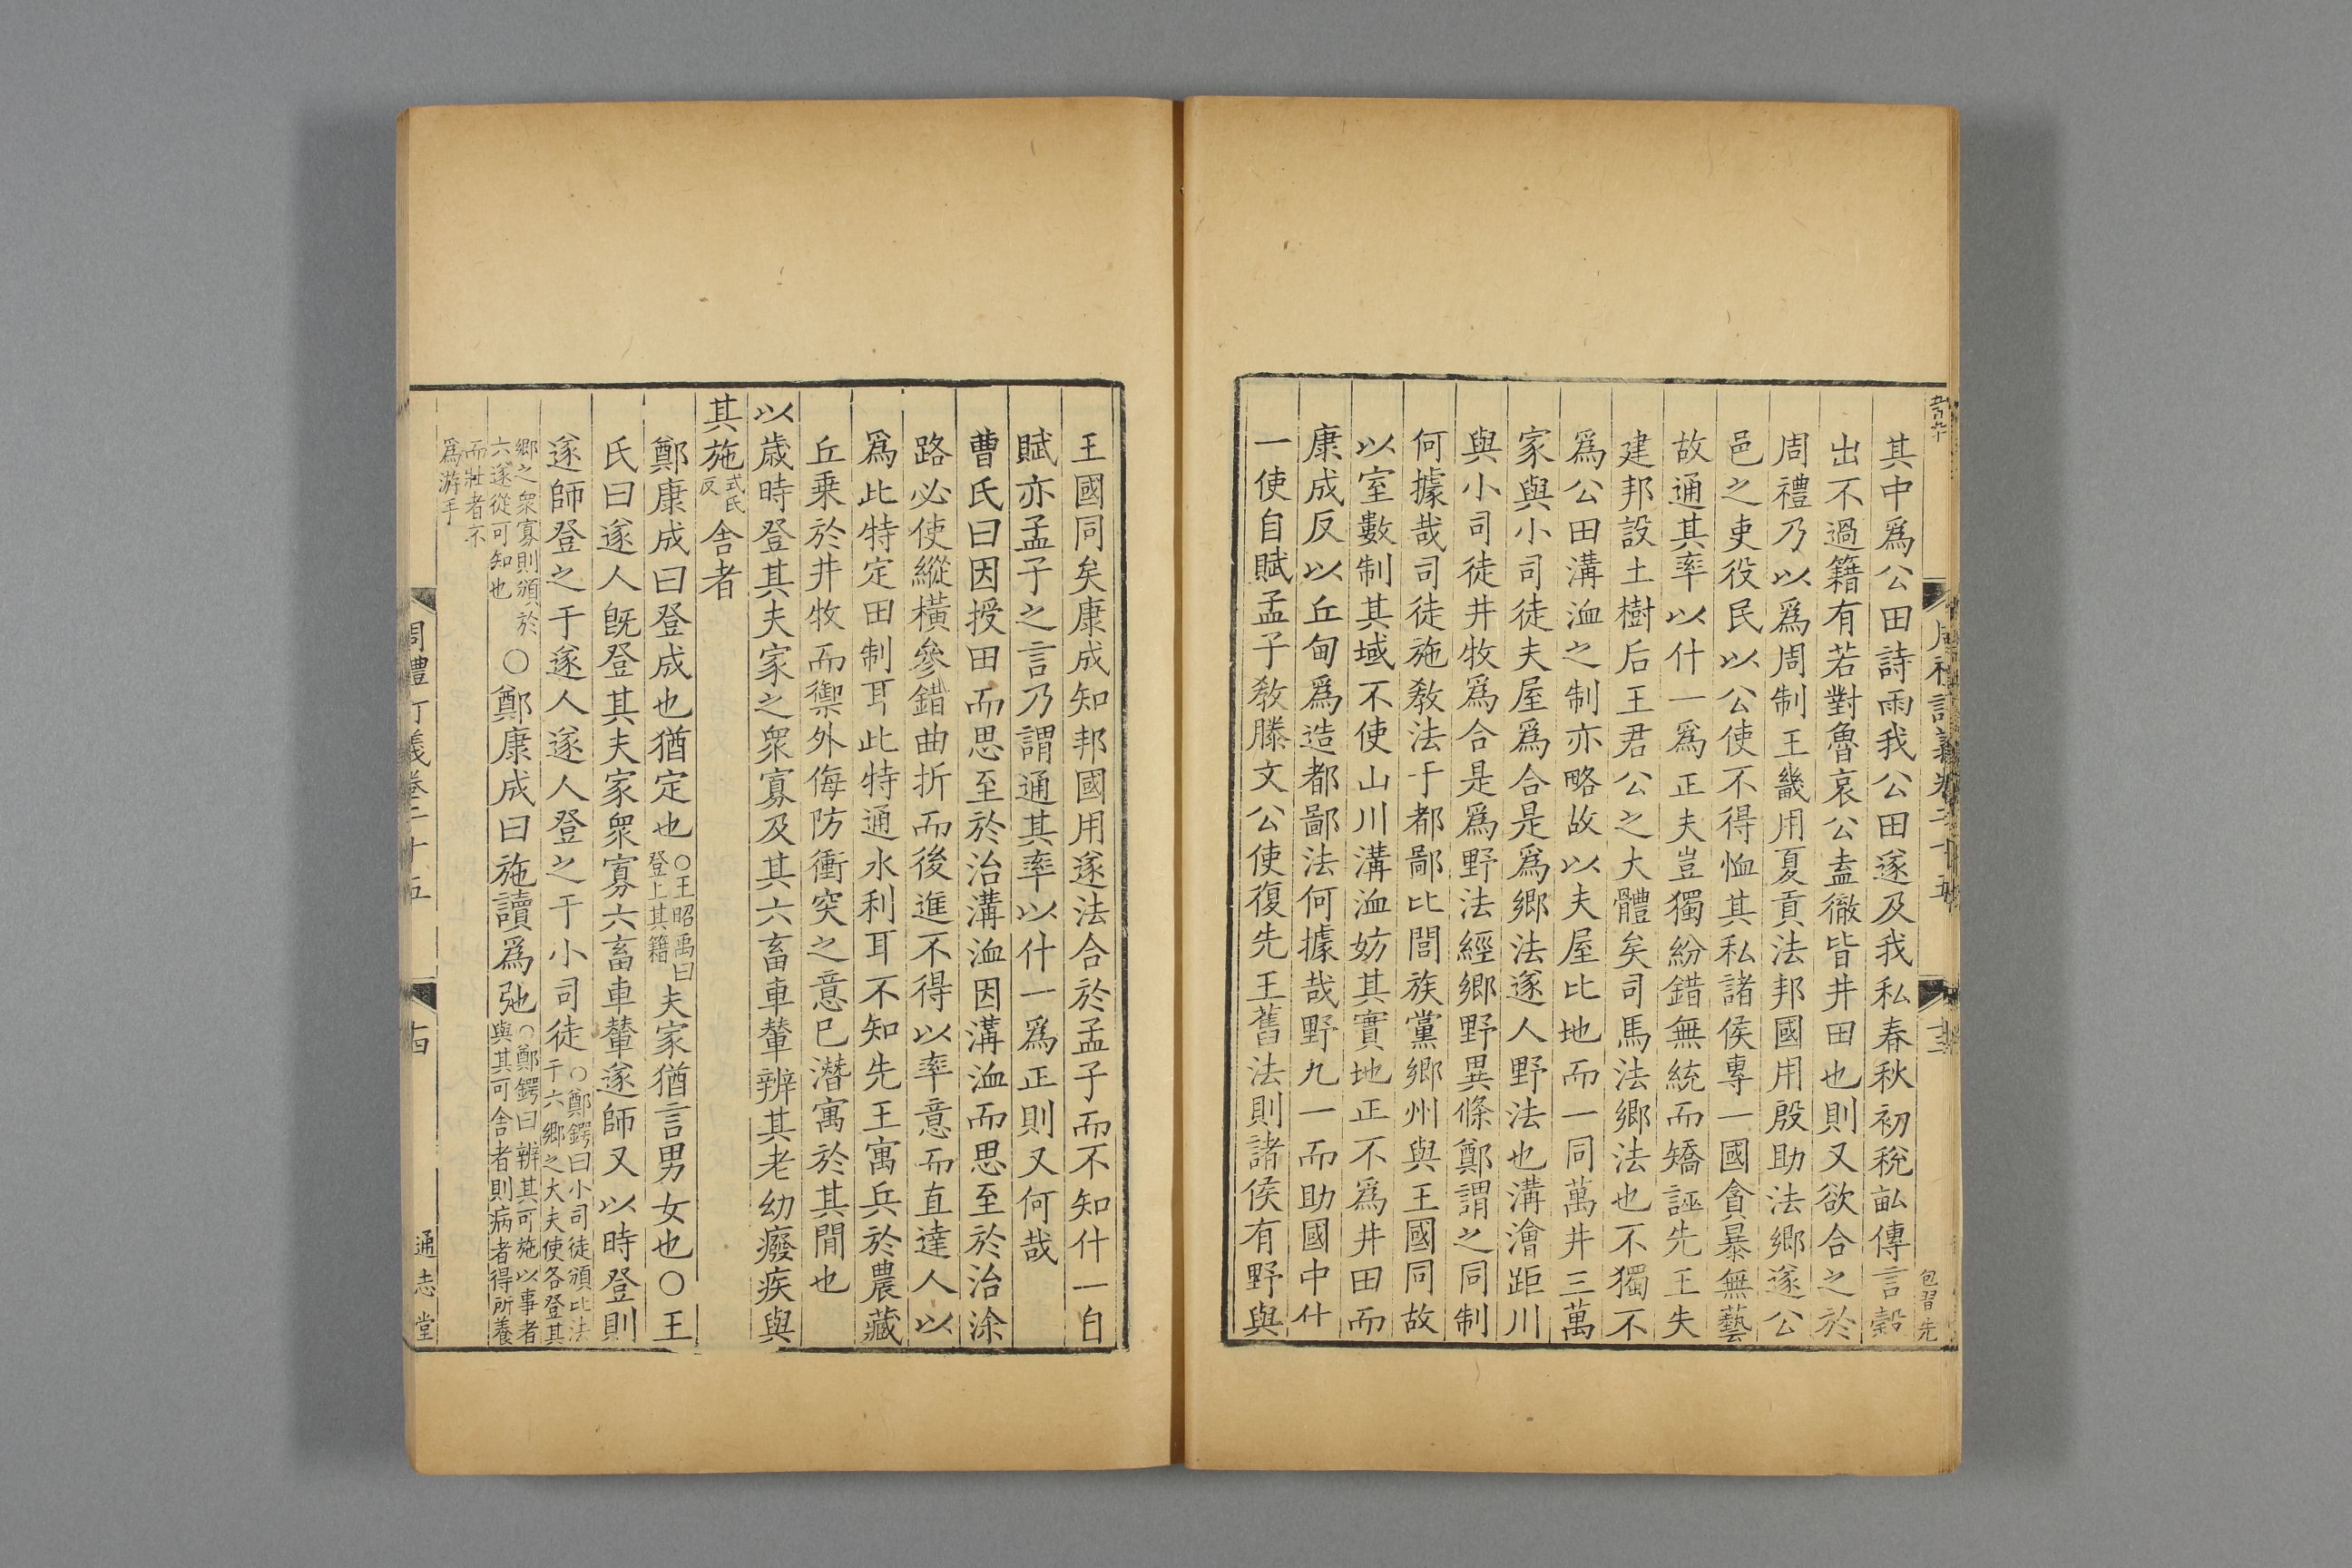 其中爲公田詩雨我公田遂及我私春秋初稅畝傳言穀
出不過籍有若對魯哀公盍徹皆井田也則又欲合之於
周禮乃以爲周制王畿用夏貢法邦國用殷助法鄉遂公
邑之吏役民以公使不得恤其私諸侯專一國貪暴無藝
故通其率以什一爲正夫豈獨紛錯無統而矯誣先王失
建邦設土樹后王君公之大體矣司馬法鄉法也不獨不
爲公田溝洫之制亦略故以夫屋比地而一同萬井三萬
家與小司徒夫屋爲合是爲鄉法遂人野法也溝澮距川
與小司徒井牧爲合是爲野法經鄉野異條鄭謂之同制
何據哉司徒施敎法于都鄙比閭族黨鄉州與王國同故
以室數制其域不使山川溝洫妨其實地正不爲井田而
康成反以丘甸爲造都鄙法何據哉野九一而助國中什
一使自賦孟子敎滕文公使復先王舊法則諸侯有野與
包習先
王國同矣康成知邦國用遂法合於孟子而不知什一自
賦亦孟子之言乃謂通其率以什一爲正則又何哉
曹氏曰因授田而思至於治溝洫因溝洫而思至於治涂
路必使縱橫參錯曲折而後進不得以率意而直達人以
爲此特定田制耳此特通水利耳不知先王寓兵於農藏
丘乗於井牧而禦外侮防衝突之意已潛寓於其間也
以歲時登其夫家之衆寡及其六畜車輦辨其老幼癈疾與
其施式氏反舍者
鄭康成曰登成也猶定也○王昭禹曰登上其籍夫家猶言男女也○王
氏曰遂人旣登其夫家衆寡六畜車輦遂師又以時登則
遂師登之于遂人遂人登之于小司徒○鄭鍔曰小司徒頒比法于六鄉之大夫使各登其
鄉之衆寡則頒於六遂從可知也○鄭康成曰施讀爲弛○鄭鍔曰辨其可施以事者與其可舍者則病者得所養
而壯者不爲游手
周禮訂義卷二十五
十四
通志堂